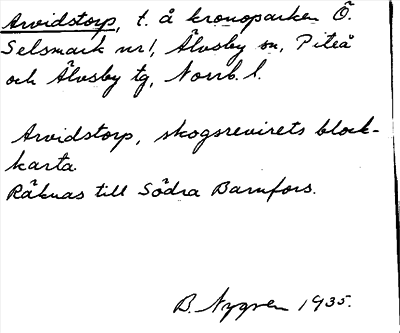 Arvidstorp, t. å kronoparken Ö.
Selsmark nr 1, Älvsby sn, Piteå
och Älvsby tg, Norrb. l.
Arvidstorp, skogsrevirets block-
karta
Räknas till Södra Barnfors.
B. Nygren 1935.